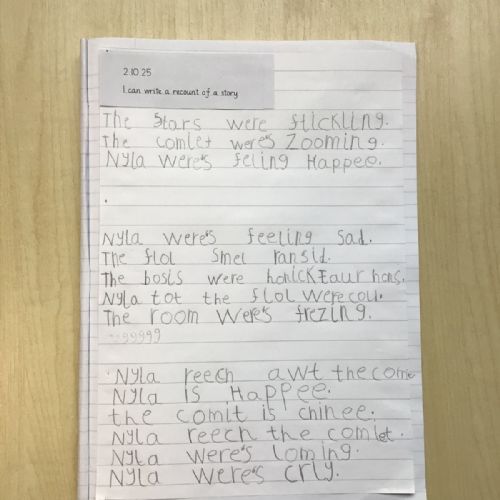 2.10.25
I can write a recount of a story
The Stars were flickling.
The comlet weres Zooming.
NYla Weres feling Happee.
NYla Weres feeling Sad.
The flol Smel ransid.
The bosis were
NYla tot the flol were coll.
The room Weres frezing.
ggggg
NYla reech awt the come
NYla is Happee.
the comit is chinee.
NYla reech the comlet.
NYla weres loming.
NYla weres crly.